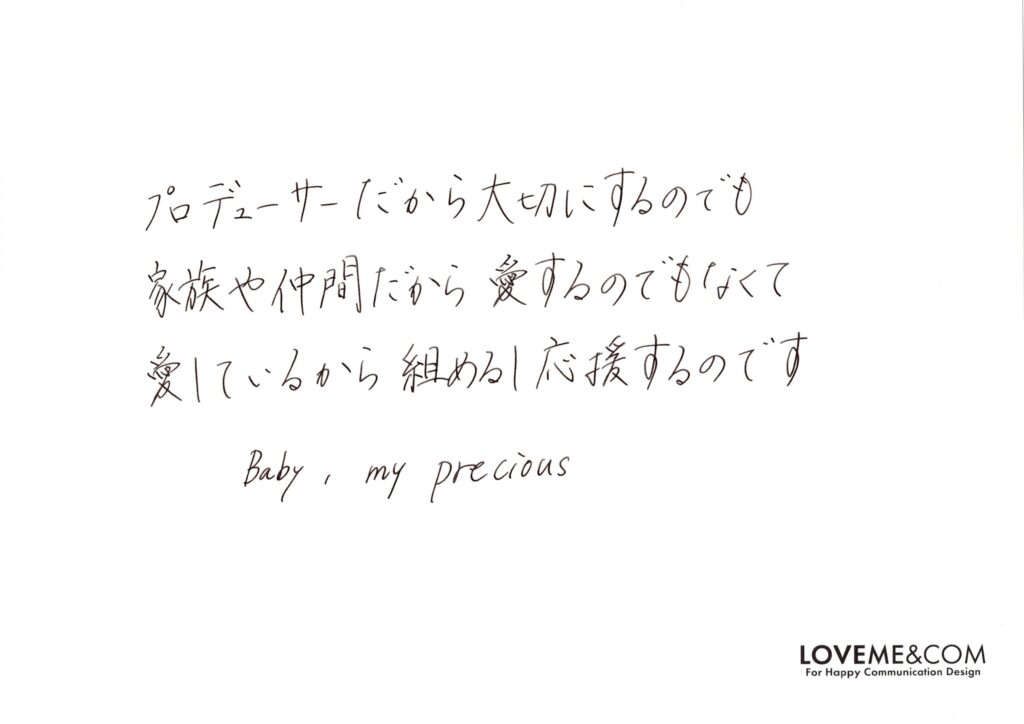 プロデューサーだから大切にするのでも
家族や仲間だから愛するのでもなくて
愛しているから組めるし応援するのです
Baby, my precious
LOVEME&COM
For Happy Communication Design